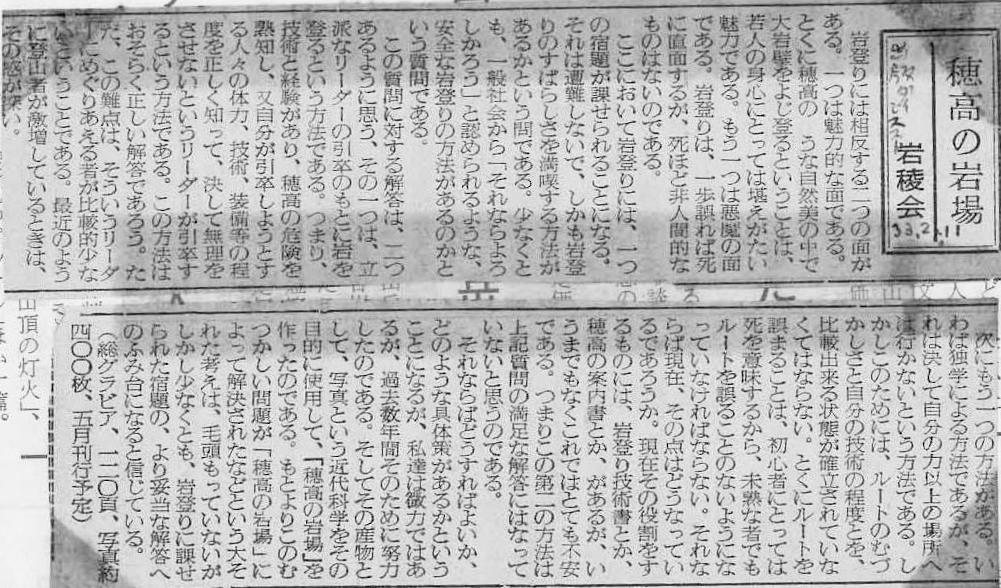 穂高の岩場
岩稜会
33.2.11
岩登りには相反する二つの面が
ある。一つは魅力的な面である。
とくに穂高の うな自然美の中で
大岩壁をよじ登るということは、
若人の身心にとっては堪えがたい
魅力である。もう一つは悪魔の面
である。岩登りは、一歩誤れば死
に直面するが、死ほど非人間的な
ものはないのである。
ここにおいて岩登りには、一つ
の宿題が課せられることになる。
それは遭難しないで、しかも岩登
りのすばらしさを満喫する方法が
あるかという問である。少なくと
も、一般社会から「それならよろ
しかろう」と認められるような、
安全な岩登りの方法があるのかと
いう質問である。
この質問に対する解答は、二つ
あるように思う、その一つは、立
派なリーダーの引卒のもとに岩を
登るという方法である。つまり、
技術と経験があり、穂高の危険を
熟知し、又自分が引卒しようとす
る人々の体力、技術、装備等の程
度を正しく知って、決して無理を
させないというリーダーが引卒す
るという方法である。この方法は
おそらく正しい解答であろう。た
だ、この難点は、そういうリーダ
ーにめぐりあえる者が比較的少な
いということである。最近のよう
に登山者が激増しているときは、
その感が深い。
次にもう一つの方法がある。い
わば独学による方法であるが、そ
れは決して自分の力以上の場所へ
は行かないという方法である。し
かしこのためには、ルートのむづ
かしさと自分の技術の程度とを、
比較出来る状態が確立されていな
くてはならない。とくにルートを
誤まることは、初心者にとっては
死を意味するから、未熟な者でも
ルートを誤ることのないようにな
っていなければならない。それな
らば現在、その点はどうなってい
るであろうか。現在その役割をす
るものには、岩登り技術書とか、
穂高の案内書とか、があるが、い
うまでもなくこれではとても不安
である。つまりこの第二の方法は
上記質問の満足な解答にはなって
いないと思うのである。
それならばどうすればよいか、
どのような具体策があるかという
ことになるが、私達は微力ではあ
るが、過去数年間そのために努力
したのである。そしてその産物と
して、写真という近代科学をその
目的に使用して、「穂高の岩場」を
作ったのである。もとよりこのむ
つかしい問題が「穂高の岩場」に
よって解決されたなどという大そ
れた考えは、毛頭もっていないが
しかし少なくとも、岩登りに課せ
られた宿題の、より妥当な解答へ
のふみ台になると信じている。
（総グラビア、一二〇頁、写真約
四〇〇枚、五月刊行予定）
山頂の灯火」、